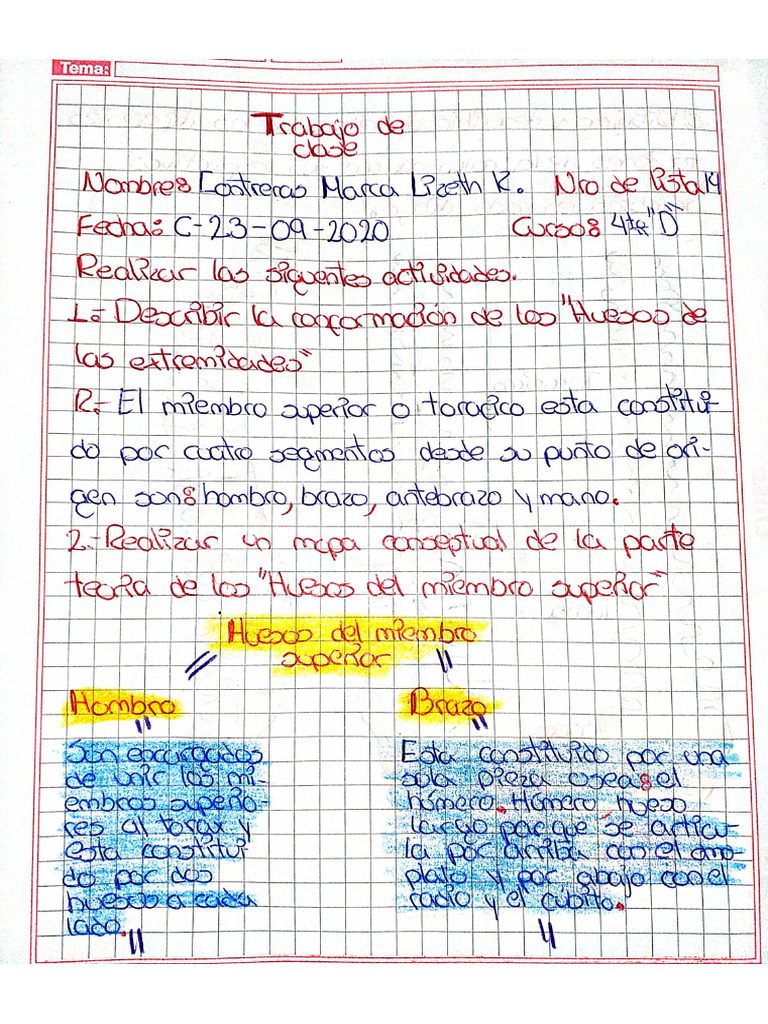 Tema:
Trabajo de
clase
Nombre: Contreras Marca Lizeth K. Nro de lista 14
Fecha: C-23-09-2020 Curso: 4to "D"
Realizar las siguentes actividades.
1.- Describir la conformación de los "Huesos de
las extremidades"
R.- El miembro superior o toracico esta constitui-
do por cuatro segmentos desde su punto de ori-
gen son: hombro, brazo, antebrazo y mano.
2.- Realizar un mapa conseptual de la parte
teoria de los "Huesos del miembro superior"
Huesos del miembro
superior
Hombro
Son encargados
de unir los mi-
embros superio-
res al torax y
esta constitui-
do por dos
huesos a cada
lado.
Brazo
Esta constituido por una
sola pieza osea: el
húmero. Húmero hueso
largo par que se articu-
la por arriba con el omo-
plato y por abajo con el
radio y el cúbito.